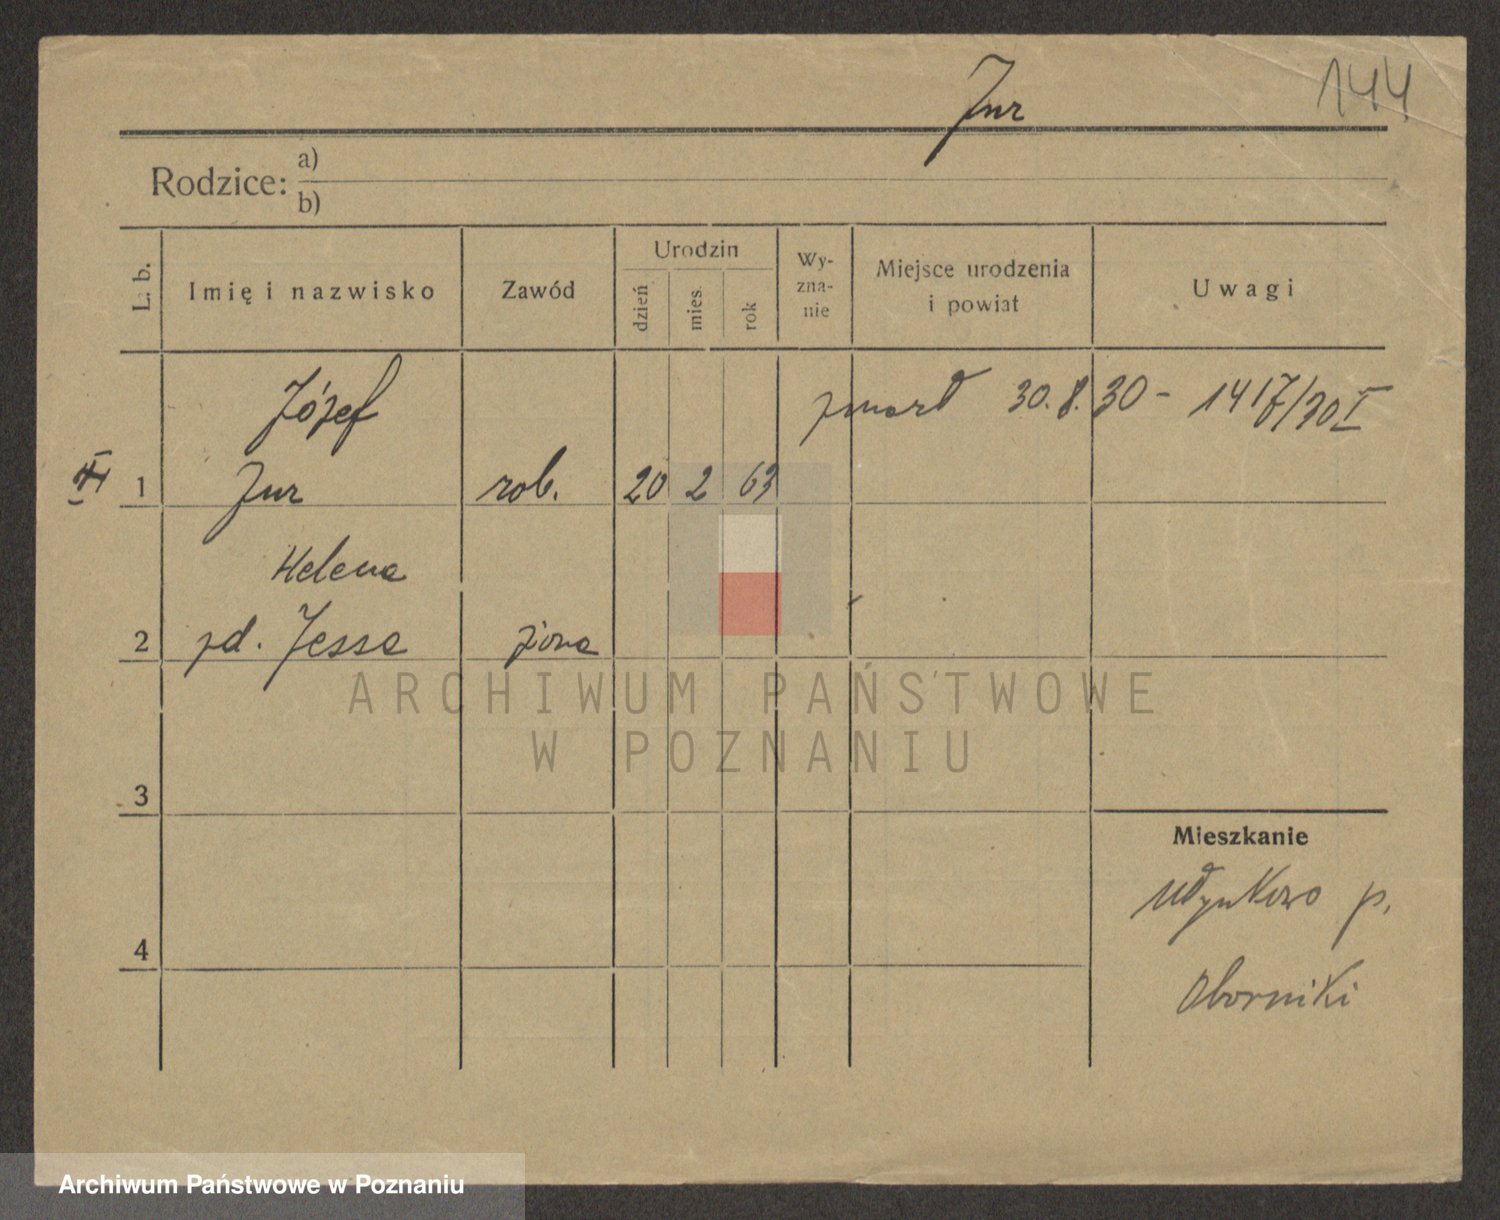 Jur
144
Rodzice: a)
b)
L. b.
Imię i nazwisko
Zawód
Urodzin
dzień
mies.
rok
Wy-
zna-
nie
Miejsce urodzenia
i powiat
Uwagi
Józef
zmarł 30.8.30 -
1 Jur rob. 20 2 63
Helena
2 zd. Jessa żona
3
4
Mieszkanie
Młynkowo p.
Oborniki
ARCHIWUM PAŃSTWOWE
W POZNANIU
Archiwum Państwowe w Poznaniu